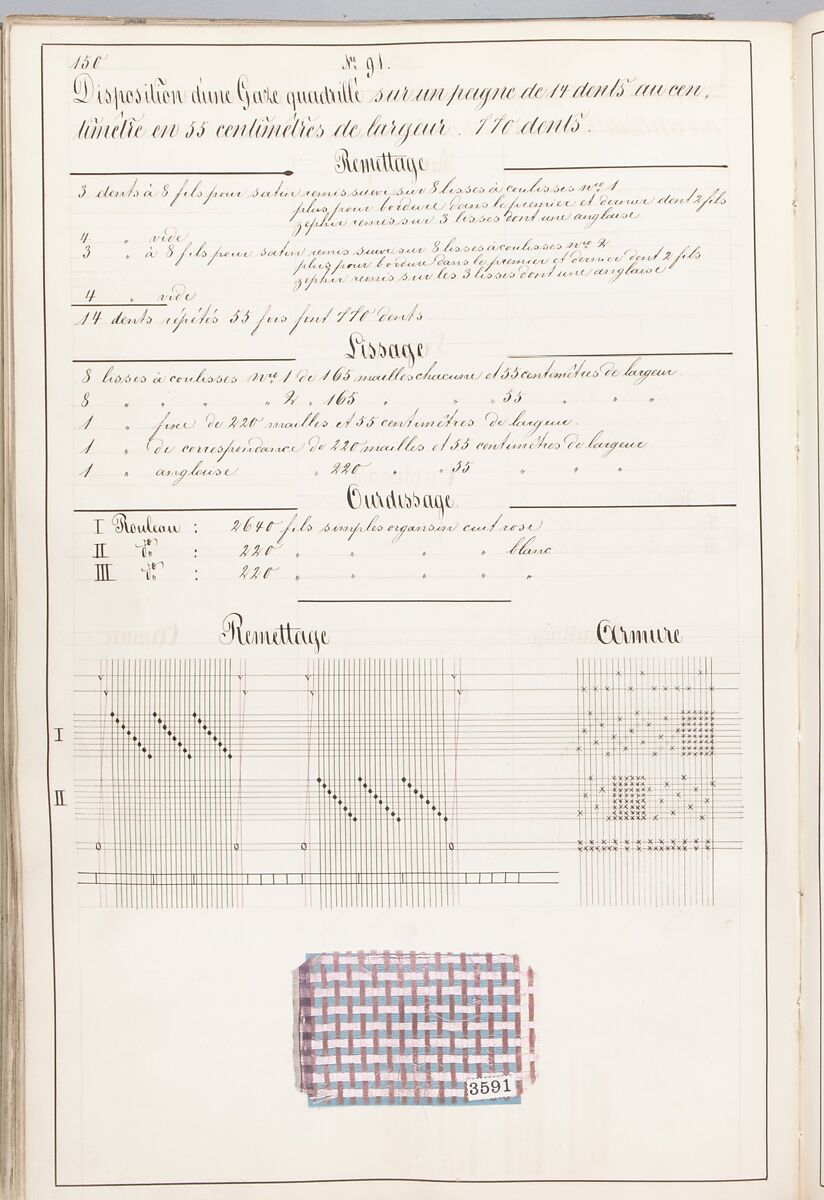 150
Nº 91.
Disposition d'une Gaze quadrillé sur un paigne de 14 dents au cen,
timétre en 55 centimétres de largeur. 770 dents.
Remettage
3 dents à 8 fils pour satin remis suivi sur 8 lisses à coulisses Nro 1
plus pour bordure dans le premier et dernier dent 2 fils
zephir remis sur 3 lisses dont une anglaise.
4 " vide
3 " à 8 fils pour satin remis suivi sur 8 lisses à coulisses Nro 2
plus pour bordure dans le premier et dernier dent 2 fils
zephir remis sur les 3 lisses dont une anglaise
4 " vide
14 dents répétés 55 fois font 770 dents
Lissage
8 lisses à coulisses Nro 1 de 165 mailles chacune et 55 centimétres de largeur.
8 " " " " 2 " 165 " " 55 " " "
1 " fixe de 220 mailles et 55 centimétres de largeur.
1 " de correspondance de 220 mailles et 55 centimétres de largeur.
1 " anglaise " 220 " " 55 " " "
Ourdissage.
I Rouleau : 2640 fils simples organsin cuit rose
II dº : 220 " " " " blanc
III dº : 220 " " " " "
Remettage
Armure
I
II
3591